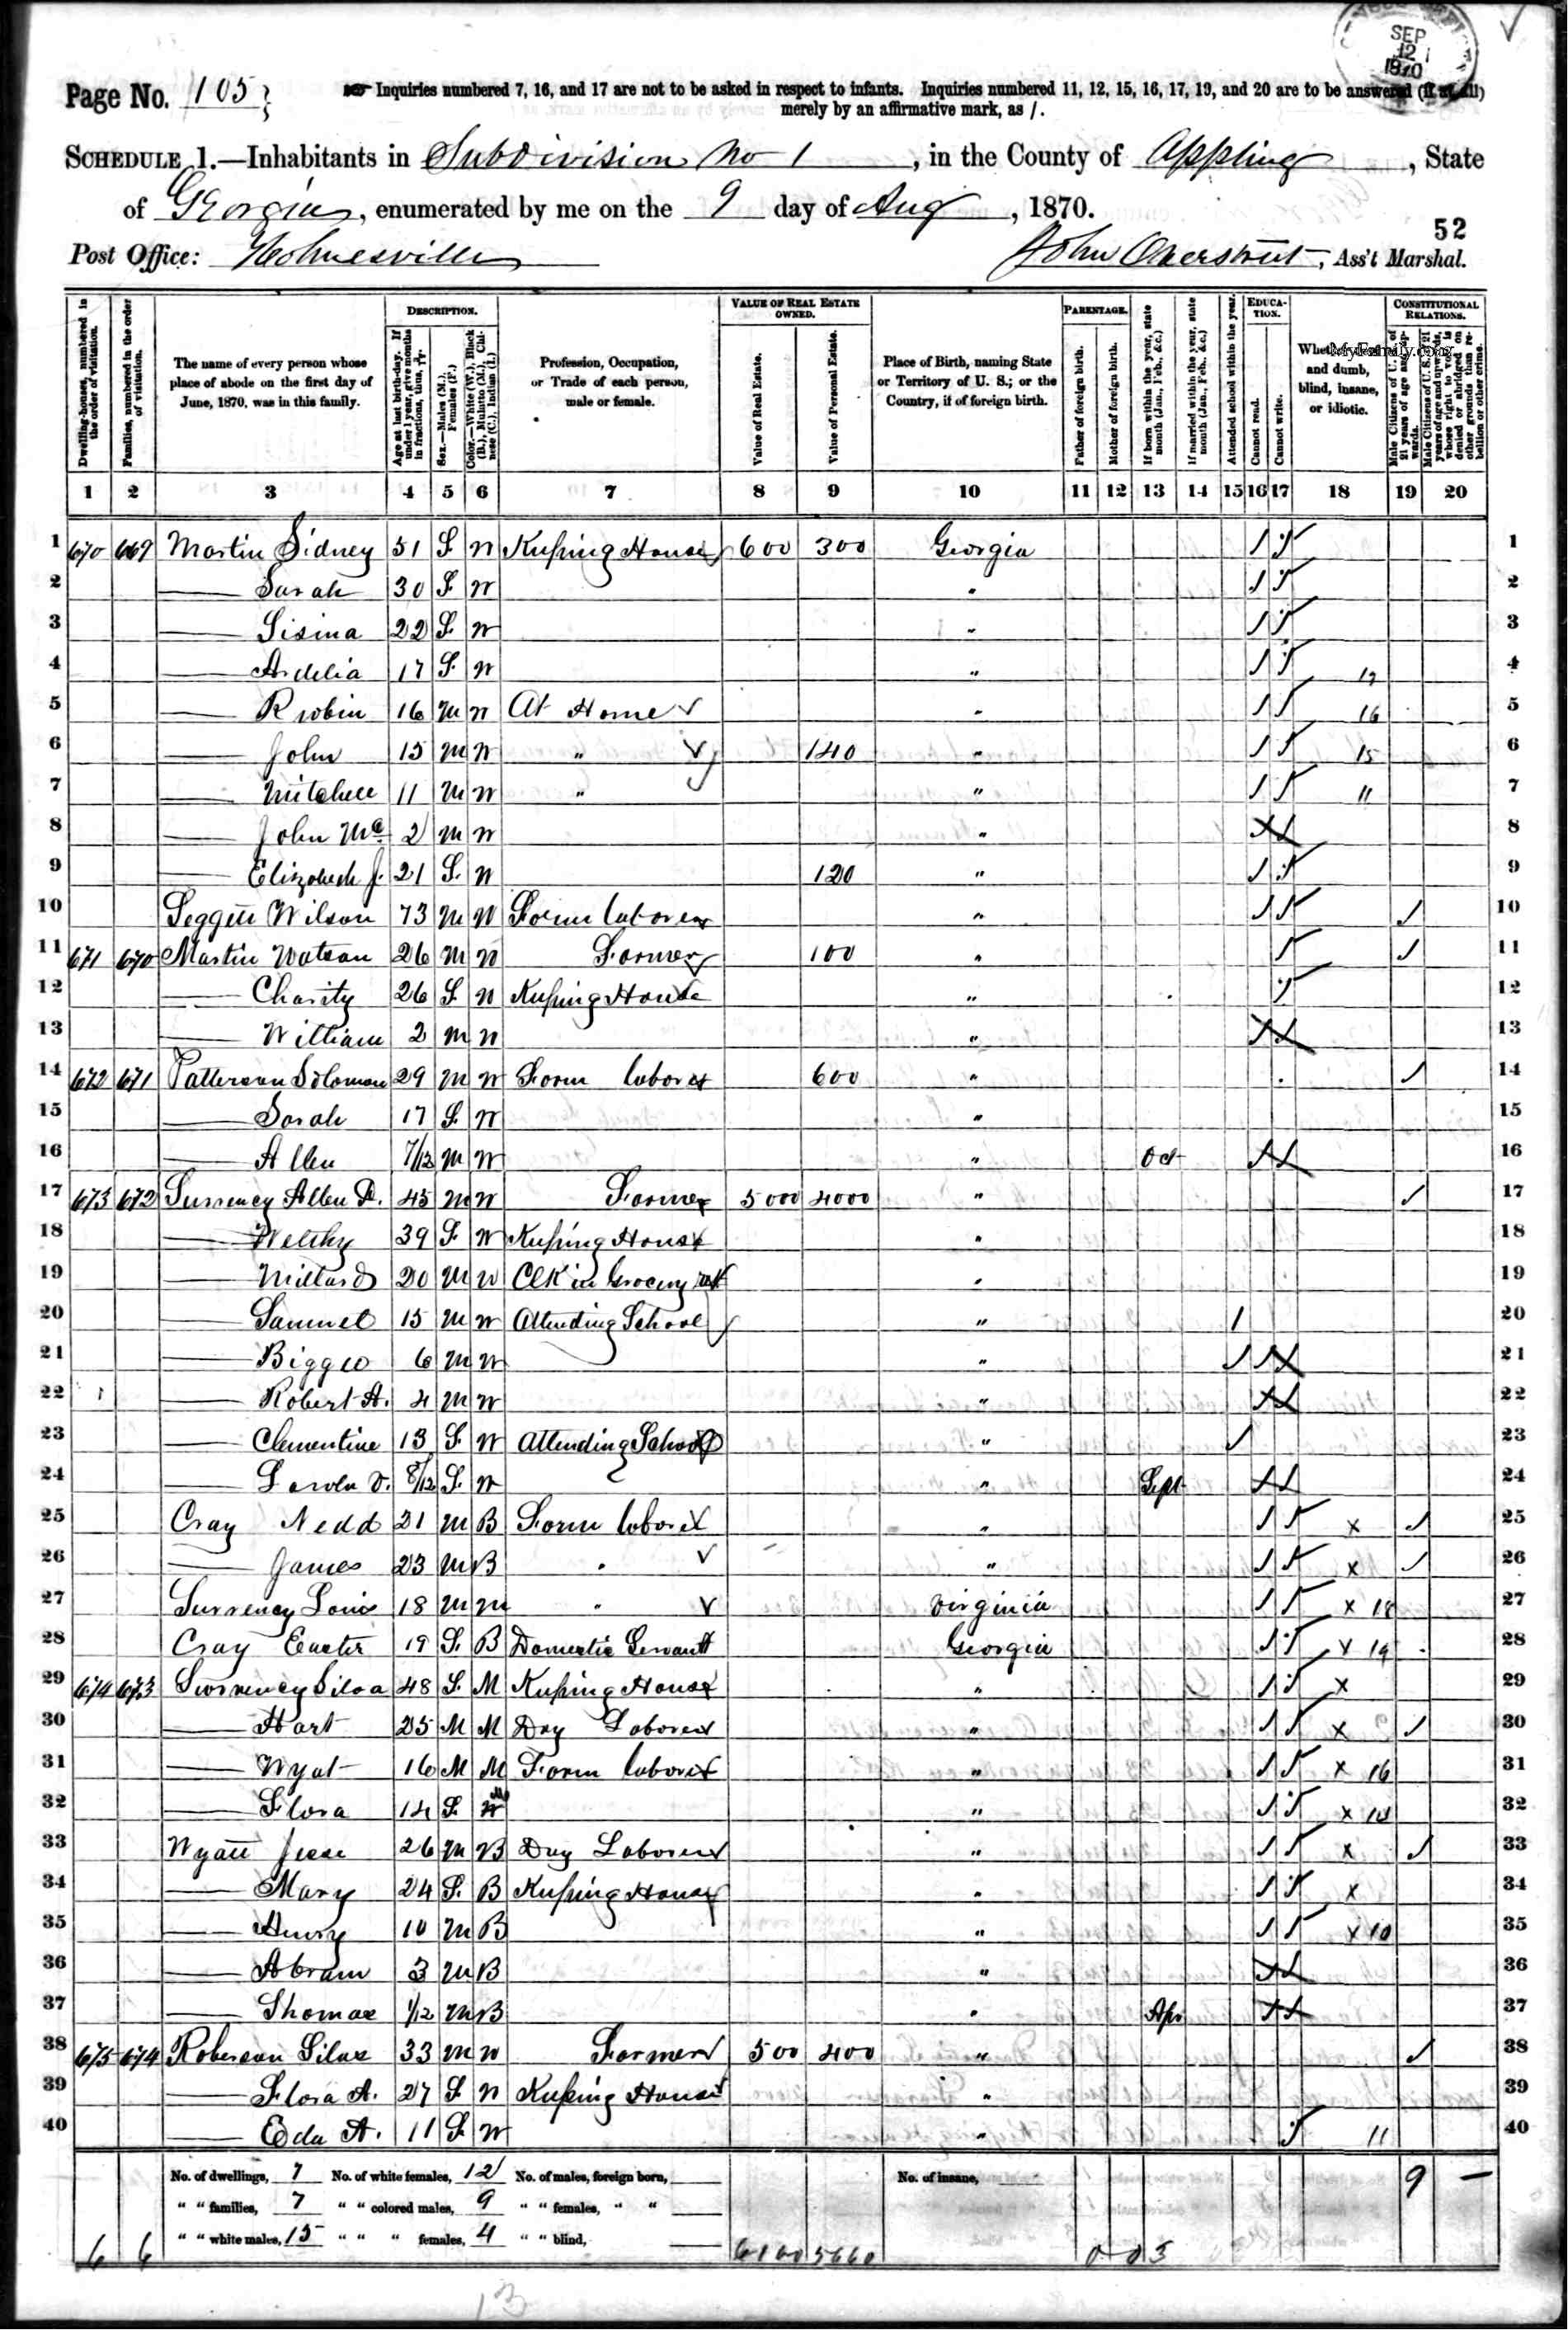 SEP
12
1870
Page No. 105
Inquiries numbered 7, 16, and 17 are not to be asked in respect to infants. Inquiries numbered 11, 12, 15, 16, 17, 19, and 20 are to be answered (if at all)
merely by an affirmative mark, as /.
SCHEDULE 1.—Inhabitants in Subdivision No 1, in the County of Appling, State
of Georgia, enumerated by me on the 9 day of Aug, 1870.
52
Post Office: Holmesville John Overstreet, Ass't Marshal.
Dwelling-houses, numbered in the order of visitation.
Families, numbered in the order of visitation.
The name of every person whose place of abode on the first day of June, 1870, was in this family.
DESCRIPTION.
Age at last birth-day. If under 1 year, give months in fractions, thus, 3/12.
Sex.—Males (M.), Females (F.)
Color.—White (W.), Black (B.), Mulatto (M.), Chinese (C.), Indian (I.)
Profession, Occupation, or Trade of each person, male or female.
VALUE OF REAL ESTATE OWNED.
Value of Real Estate.
Value of Personal Estate.
Place of Birth, naming State or Territory of U. S.; or the Country, if of foreign birth.
PARENTAGE.
Father of foreign birth.
Mother of foreign birth.
If born within the year, state month (Jan., Feb., &c.)
If married within the year, state month (Jan., Feb., &c.)
Attended school within the year.
EDUCATION.
Cannot read.
Cannot write.
Whether deaf and dumb, blind, insane, or idiotic.
MyFamily.com
CONSTITUTIONAL RELATIONS.
Male Citizens of U.S. of 21 years of age and upwards.
Male Citizens of U.S. of 21 years of age and upwards, whose right to vote is denied or abridged on other grounds than rebellion or other crime.
1 2 3 4 5 6 7 8 9 10 11 12 13 14 15 16 17 18 19 20
1 670 669 Martin Sidney 51 F W Keeping House 600 300 Georgia / / 1
2 — Sarah 30 F W " / / 2
3 — 22 F W " / / 3
4 — Ardelia 17 F W " / / 17 4
5 — Rubin 16 M W At Home " / / 16 5
6 — John 15 M W " 140 " / / 15 6
7 — Mitchell 11 M W " " / / 11 7
8 — John Mc 2 M W " 8
9 — Elizabeth J. 21 F W 120 " / / 9
10 Wilson 73 M W Farm laborer " / / / 10
11 671 670 Martin Watson 26 M W Farmer 100 " / / 11
12 — Charity 26 F W Keeping House " / 12
13 — William 2 M W " 13
14 672 671 Patterson Solomon 29 M W Farm laborer 600 " / 14
15 — Sarah 17 F W " 15
16 — Allen 7/12 M W " Oct 16
17 673 672 Surrency Allen D. 45 M W Farmer 5000 4000 " / 17
18 — Welthy 39 F W Keeping House " 18
19 — Millard 20 M W Clk in Grocery " 19
20 — Samuel 15 M W Attending School " / 20
21 — 6 M W " / 21
22 — Robert A. 4 M W " 22
23 — Clementine 13 F W Attending School " / 23
24 — 8/12 F W " Sept 24
25 Cray Nedd 21 M B Farm laborer " / / x / 25
26 — James 23 M B " " / / x / 26
27 Surrency 18 M M " Virginia / / x 18 27
28 Cray Easter 19 F B Domestic Servant Georgia / / x 19 28
29 674 673 Surrency 48 F M Keeping House " / / x 29
30 — Hart 25 M M Day Laborer " / / x / 30
31 — Wyat 16 M M Farm laborer " / / x 16 31
32 — Flora 14 F M " / / x 14 32
33 Wyatt Jesse 26 M B Day Laborer " / / x / 33
34 — Mary 24 F B Keeping House " / / x 34
35 — Henry 10 M B " / / x 10 35
36 — Abram 3 M B " 36
37 — Thomas 1/12 M B " Apr 37
38 675 674 Roberson Silas 33 M W Farmer 500 400 " / 38
39 — Flora A. 27 F W Keeping House " 39
40 — Eda A. 11 F W " / 11 40
No. of dwellings, 7 No. of white females, 12 No. of males, foreign born, No. of insane, 9 —
" " families, 7 " " colored males, 9 " " females, " "
" " white males, 15 " " " females, 4 " " blind,
6 6 6100 5660 0 0 3
13